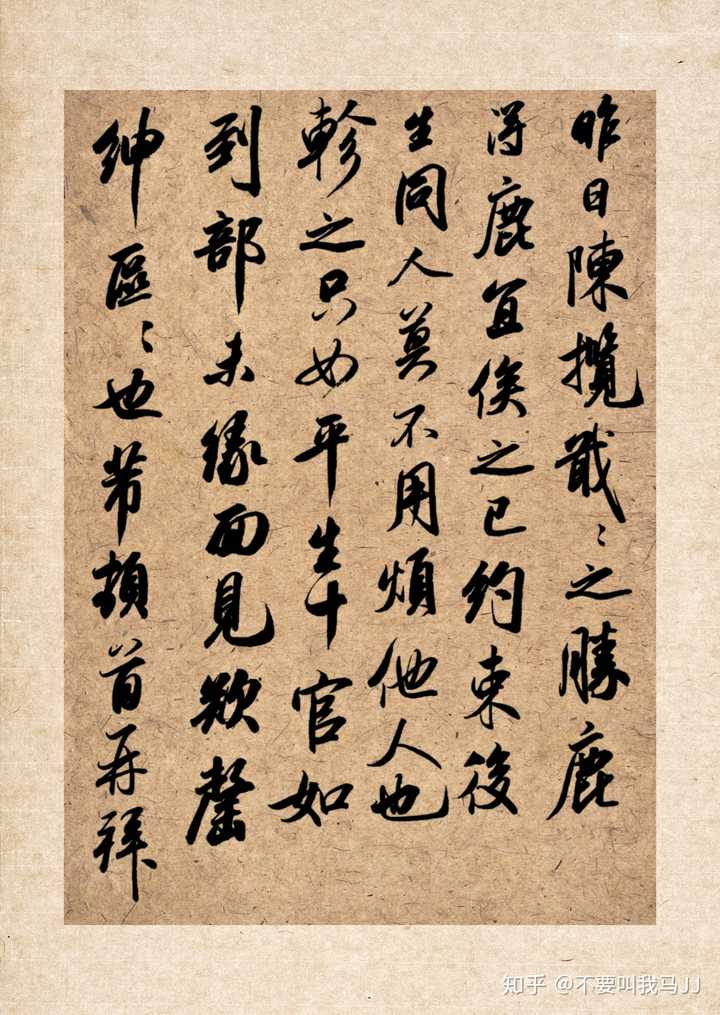 昨日陳攬戢〻之勝鹿
得鹿宜俟之已約束後
生同人莫不用煩他人也
軫之只如平生十官如
到部未緣面見欲罄
紳區〻也芾頓首再拜
知乎 @不要叫我马JJ